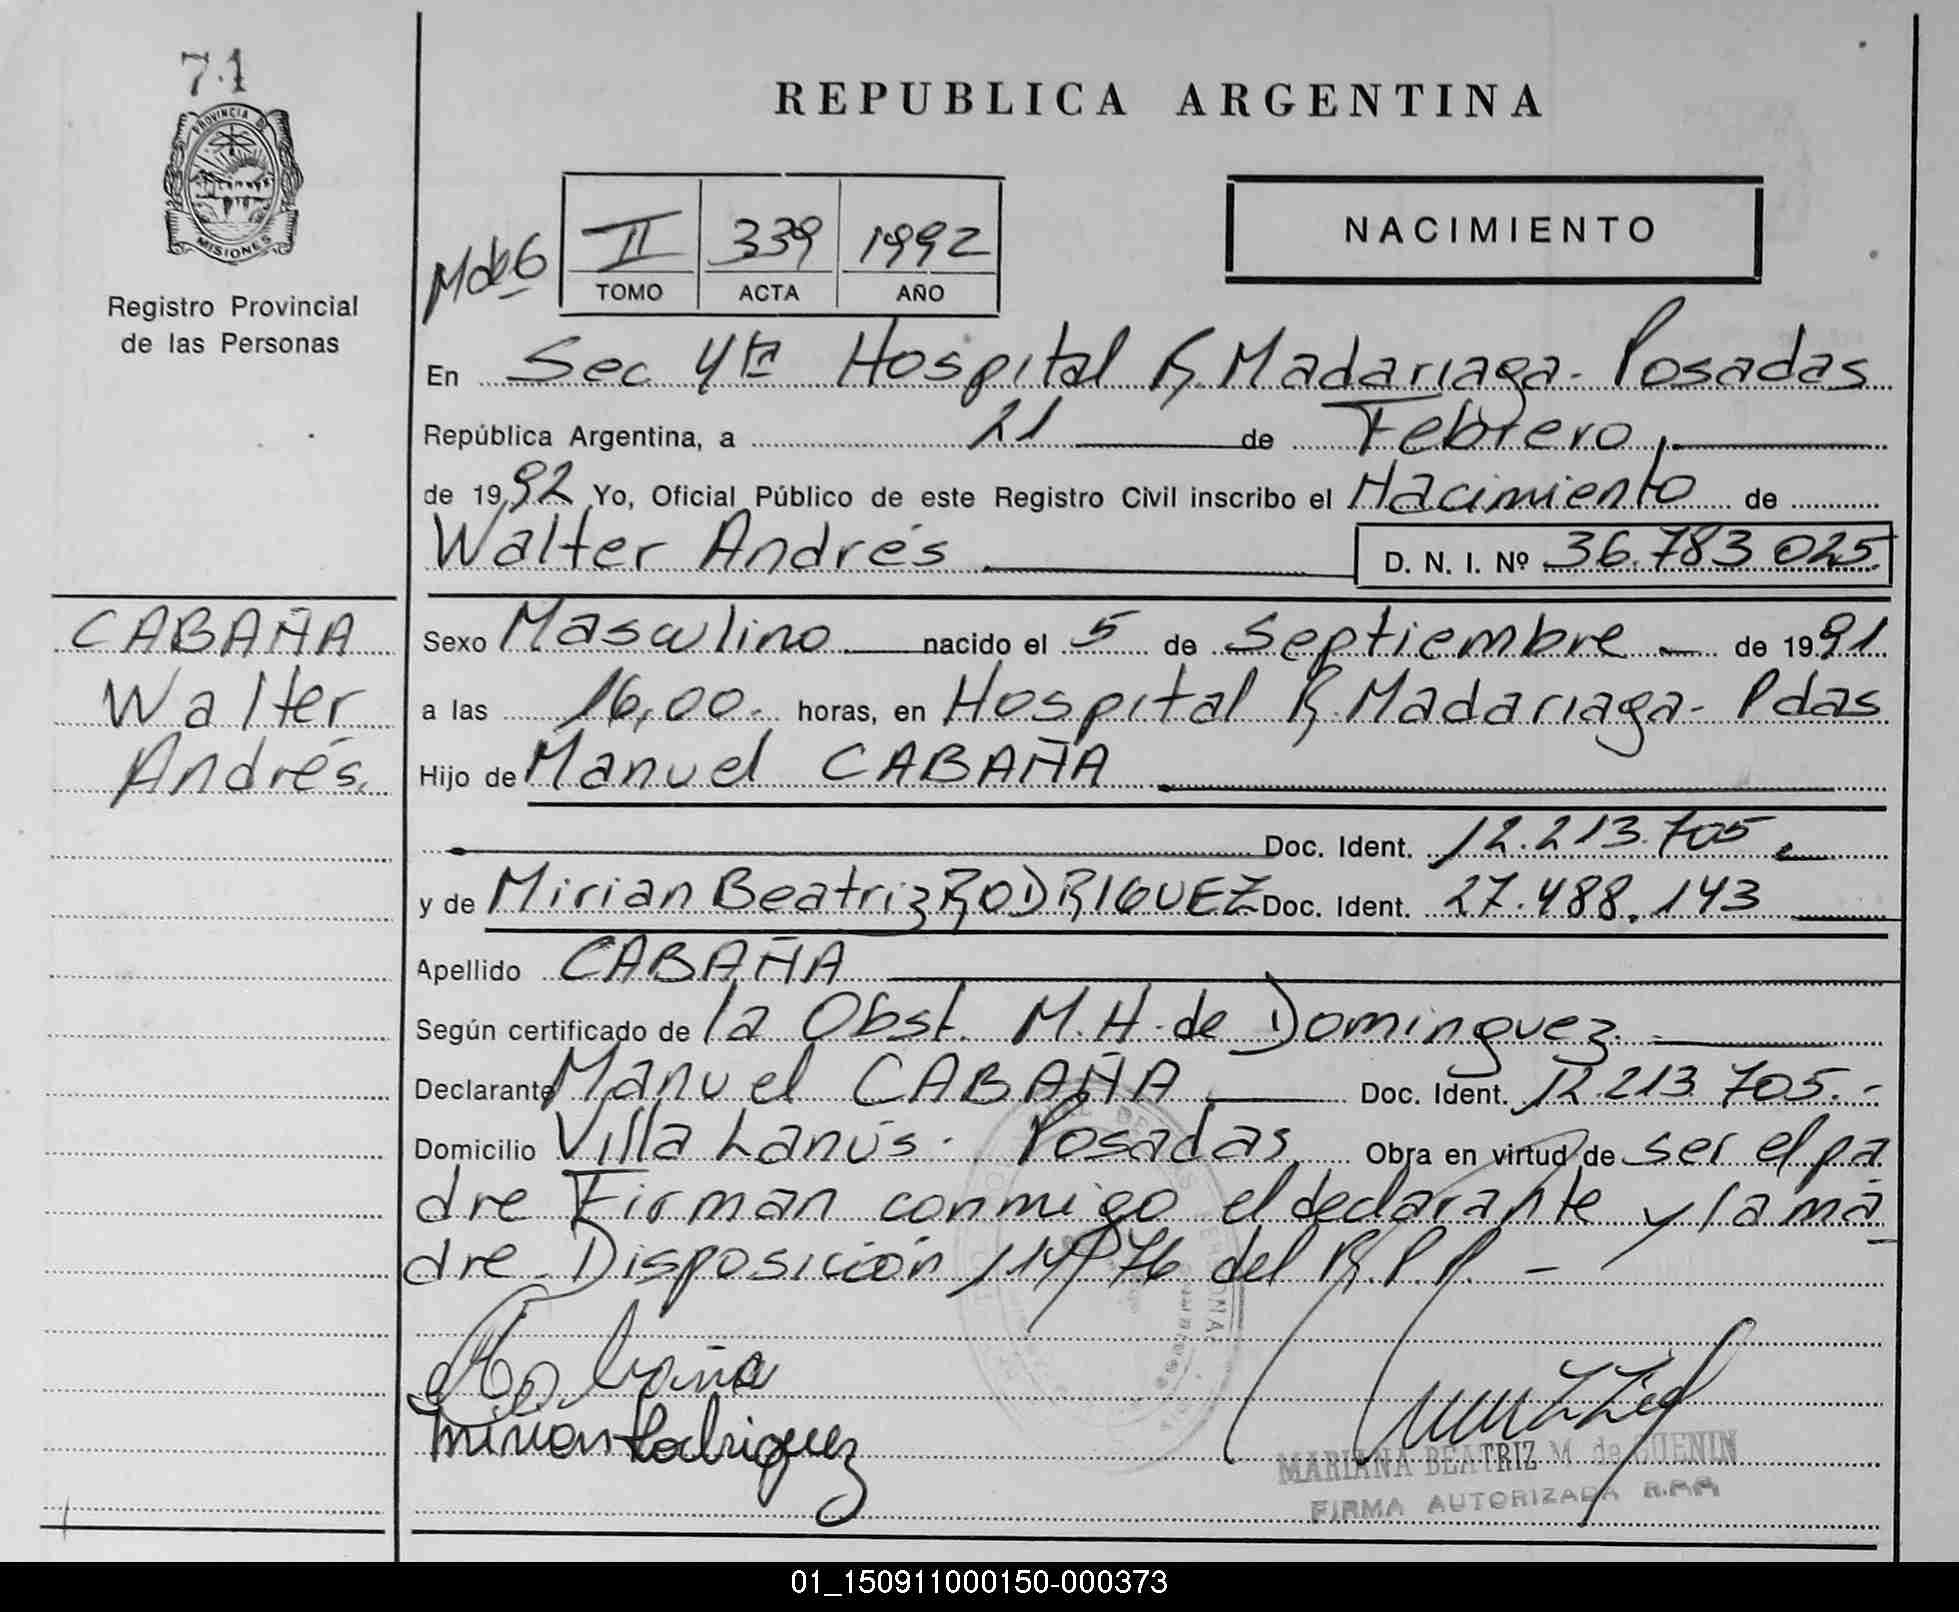 71
PROVINCIA DE
MISIONES
Registro Provincial
de las Personas
REPUBLICA ARGENTINA
NACIMIENTO
II 339 1992
TOMO ACTA AÑO
En Sec 4ta Hospital R. Madariaga - Posadas
República Argentina, a 21 de Febrero
de 1992 Yo, Oficial Público de este Registro Civil inscribo el Nacimiento de
Walter Andrés D. N. I. Nº 36.783.025.
CABAÑA
Walter
Andrés.
Sexo Masculino nacido el 5 de Septiembre de 1991
a las 16,00. horas, en Hospital R. Madariaga - Pdas
Hijo de Manuel CABAÑA
Doc. Ident. 12.213.705
y de Mirian Beatriz RODRIGUEZ Doc. Ident. 27.488.143
Apellido CABAÑA
Según certificado de la Obst. M.H. de Dominguez.
Declarante Manuel CABAÑA Doc. Ident. 12.213.705.-
Domicilio Villa Lanús - Posadas Obra en virtud de ser el pa
dre Firman conmigo el declarante y la ma
dre Disposición 114/76 del R.P.P. -
Mirian Rodriguez
MARIANA BEATRIZ M. de GUENIN
FIRMA AUTORIZADA R.P.P.
01_150911000150-000373